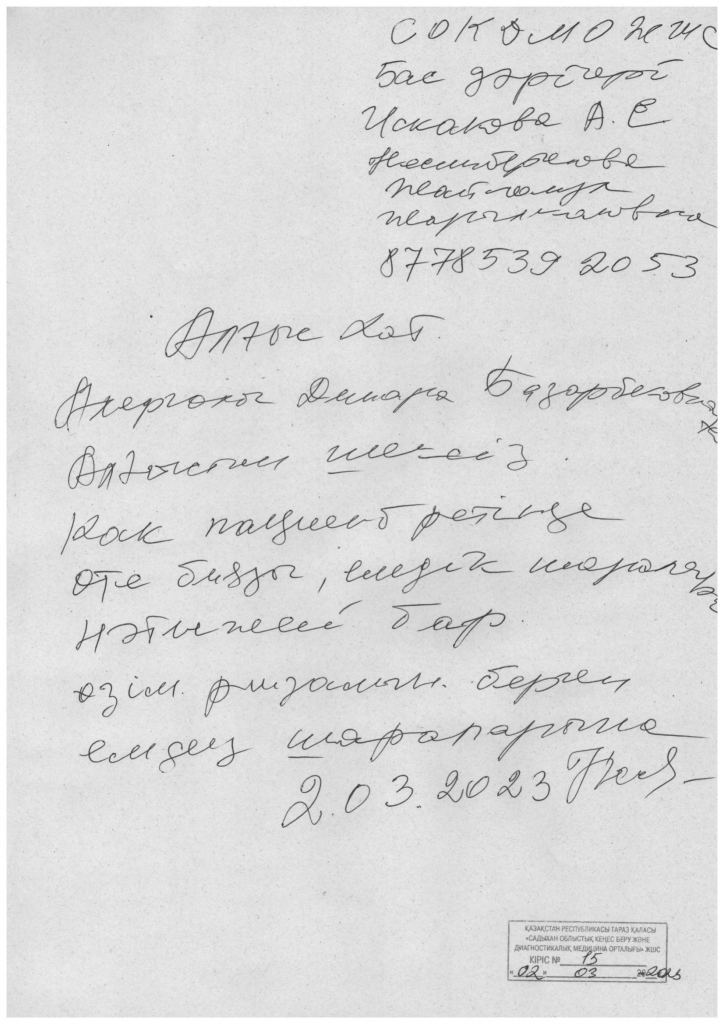 СОКДМО ЖШС
Бас дәрігері
Искакова А. Е
8778539 2053
Алғыс хат.
Динара Базарбековна
Алғысым шексіз.
Как пациент ретінде
өте биязы, емдік шаралары
нәтижесі бар.
өзім ризамын. берген
емдеу шараларына
2.03.2023
ҚАЗАҚСТАН РЕСПУБЛИКАСЫ ТАРАЗ ҚАЛАСЫ
«САДЫХАН ОБЛЫСТЫҚ КЕҢЕС БЕРУ ЖӘНЕ
ДИАГНОСТИКАЛЫҚ МЕДИЦИНА ОРТАЛЫҒЫ» ЖШС
КІРІС № 15
«02» 03 2023